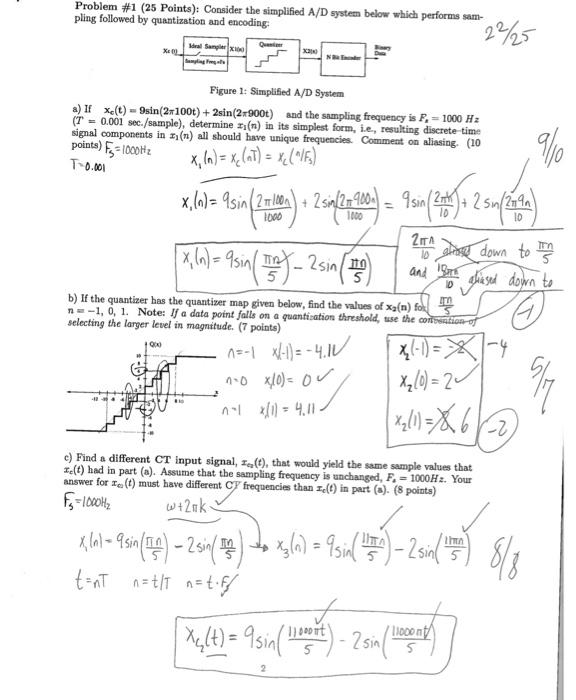 Problem #1 (25 Points): Consider the simplified A/D system below which performs sam-
pling followed by quantization and encoding:
22/25
Xc (t)
Ideal Sampler
Sampling Freq.=Fs
X1(n)
Quantizer
X2(n)
N Bit Encoder
Binary
Data
Figure 1: Simplified A/D System
a) If xc(t) = 9sin(2π100t) + 2sin(2π900t) and the sampling frequency is Fs = 1000 Hz
(T = 0.001 sec./sample), determine x1(n) in its simplest form, i.e., resulting discrete-time
signal components in x1(n) all should have unique frequencies. Comment on aliasing. (10
points)
9/10
Fs=1000Hz
T=0.001
x1(n) = xc(nT) = xc(n/Fs)
x1(n) = 9sin(2π100n/1000) + 2sin(2π900n/1000) = 9sin(2πn/10) + 2sin(2π9n/10)
x1(n) = 9sin(πn/5) - 2sin(πn/5)
2πn/10 aliased down to πn/5
and 18πn/10 aliased down to
πn/5
-1
b) If the quantizer has the quantizer map given below, find the values of x2(n) for
n = -1, 0, 1. Note: If a data point falls on a quantization threshold, use the convention of
selecting the larger level in magnitude. (7 points)
Q(x)
n=-1 x(-1) = -4.11 ✓
n=0 x1(0) = 0 ✓
n=1 x1(1) = 4.11 ✓
x2(-1) = -4
x2(0) = 2 ✓
x2(1) = 6
-2
5/7
c) Find a different CT input signal, xc2(t), that would yield the same sample values that
xc(t) had in part (a). Assume that the sampling frequency is unchanged, Fs = 1000Hz. Your
answer for xc2(t) must have different CT frequencies than xc(t) in part (a). (8 points)
Fs=1000Hz
ω+2πk ✓
x1(n) = 9sin(πn/5) - 2sin(πn/5) → x3(n) = 9sin(11πn/5) - 2sin(11πn/5)
8/8
t=nT n=t/T n=t·Fs
xc2(t) = 9sin(11000πt/5) - 2sin(11000πt/5)
2